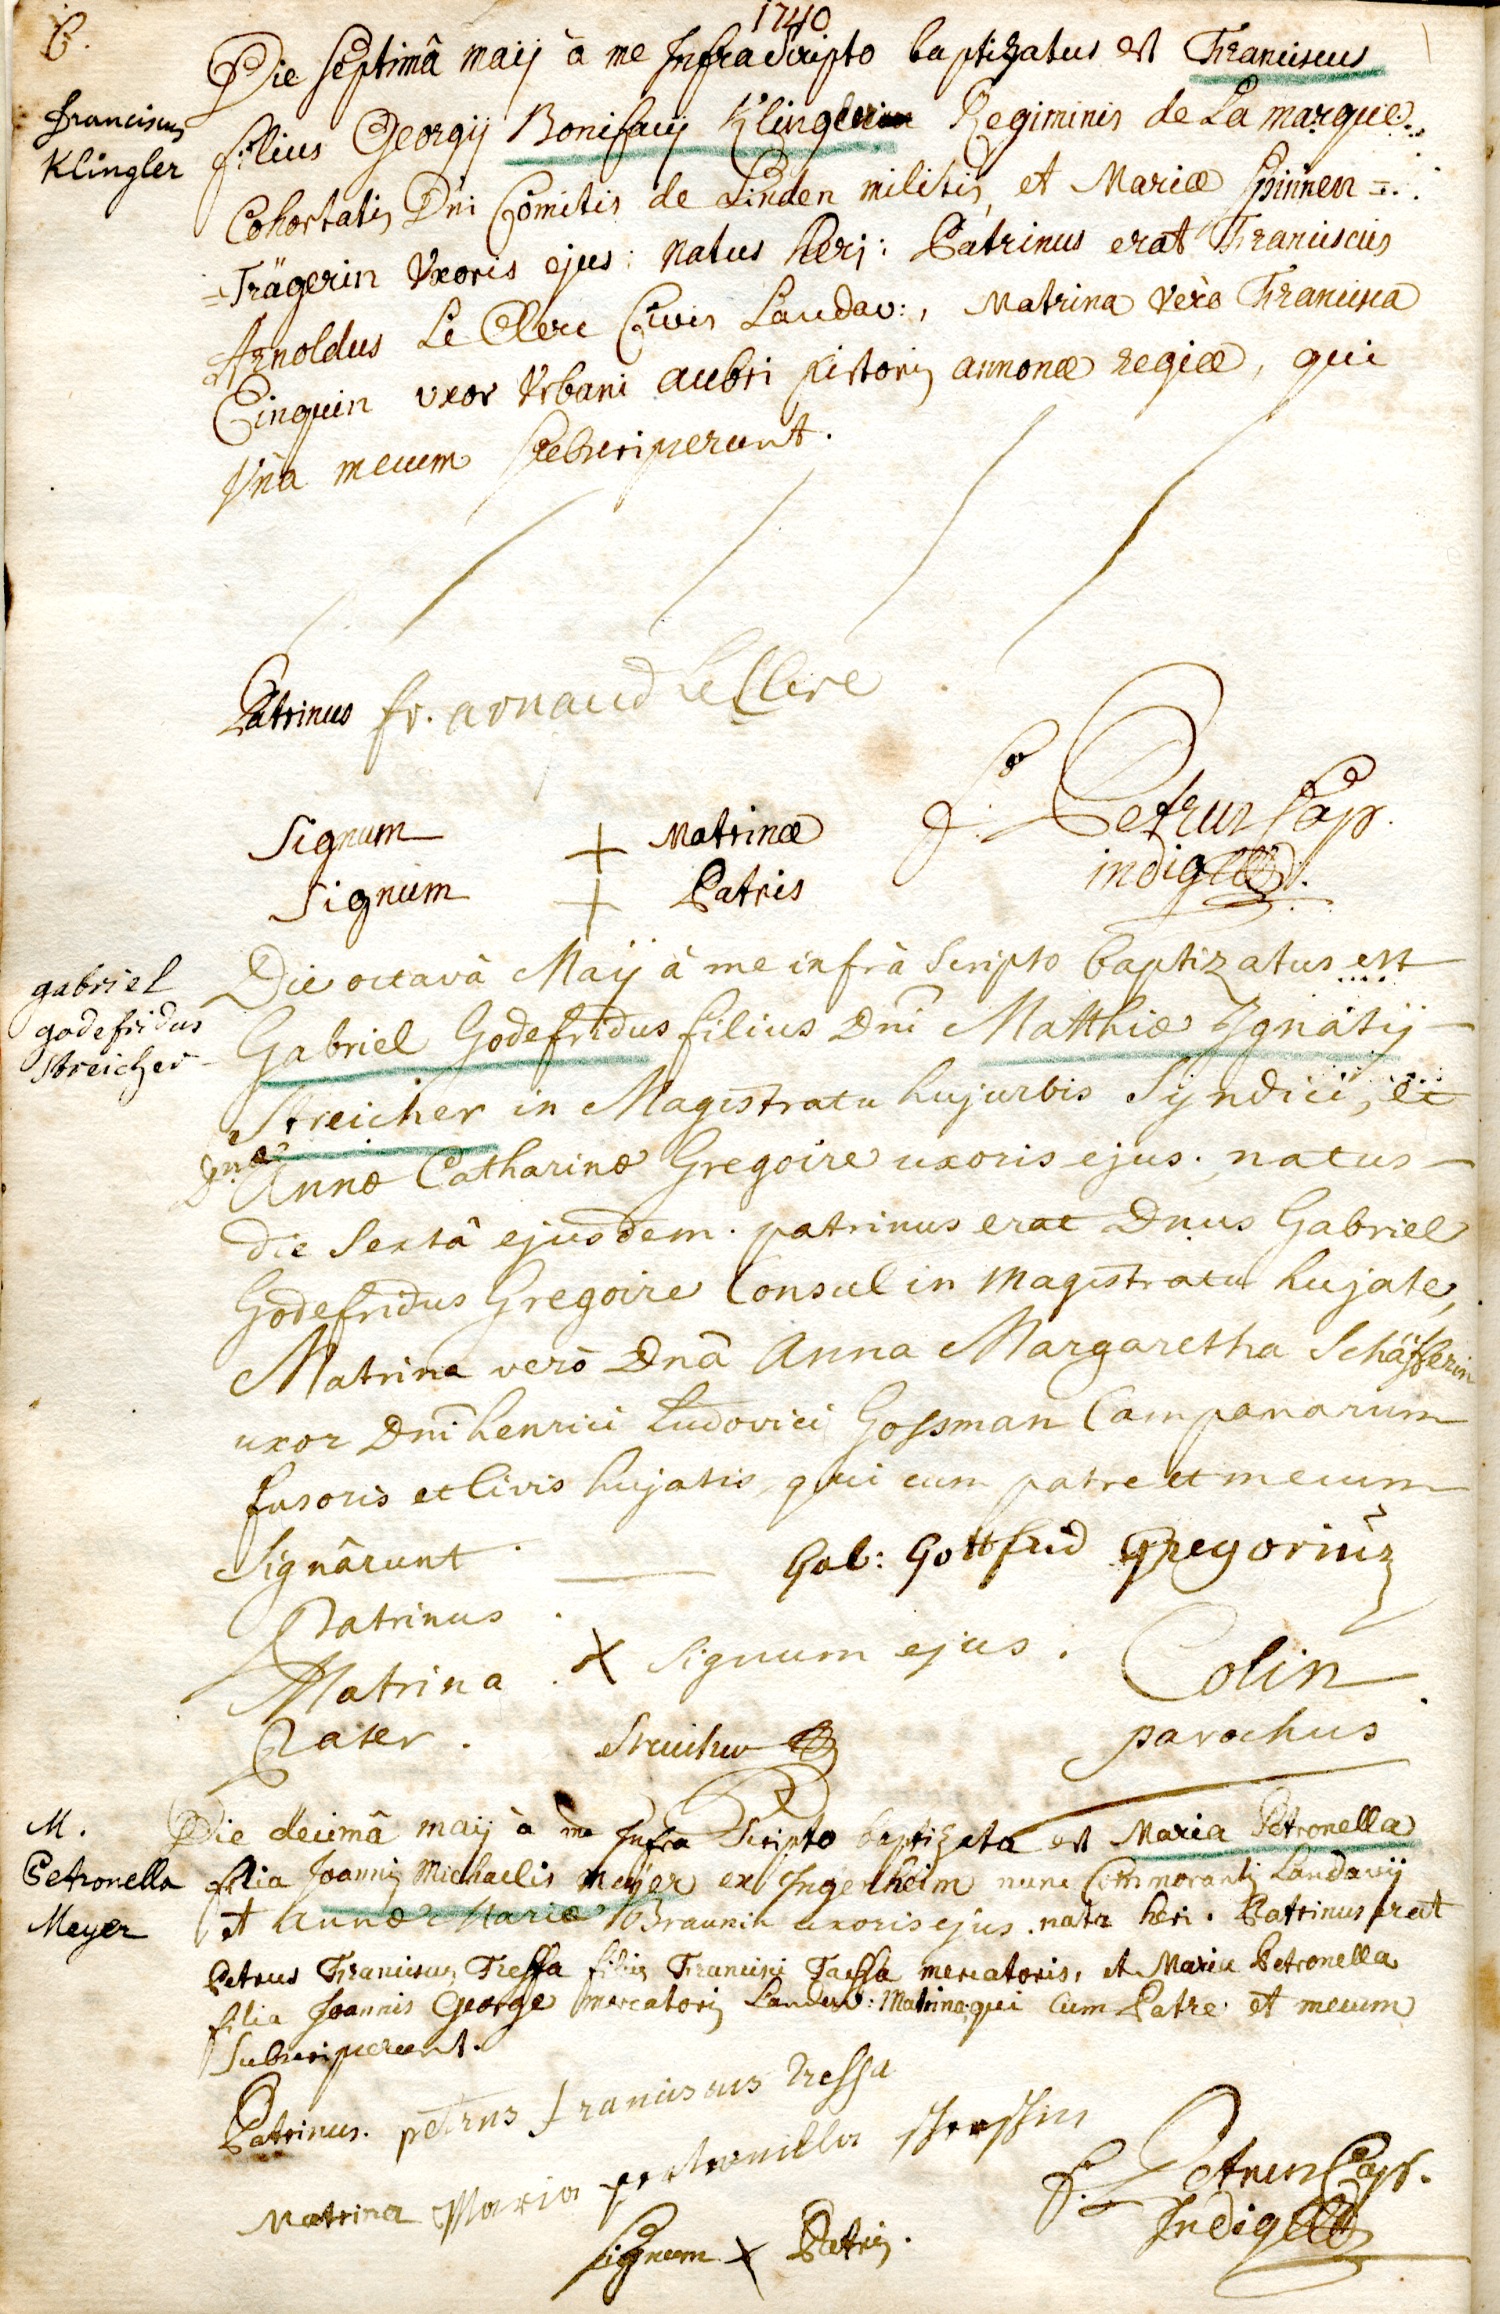 1740
B.
Die septimâ maij à me Infra Scripto baptizatus est Franciscus
Franciscus
Klingler
filius Georgij Bonifacij Klingler Regiminis de La marque
Cohortatis Dni Comitis de Linden militis, et Mariæ Spinnen =
=Trägerin Vxoris ejus: natus heri: Patrinus erat Franciscus
Arnoldus Le Clerc Civis Landav:, Matrina verò Francisca
Cinquin uxor Vrbani aubri pistoris annonæ regiæ, qui
Vnà mecum subscripserunt.
Patrinus fr. arnaud LeClerc
Signum + Matrinæ
Signum + Patris
F. Petrus Cap.
indig
gabriel
godefridus
Streicher
Die octavâ Maij à me infrà Scripto baptizatus est
Gabriel Godefridus filius Dni Matthiæ Ignatij
Streicher in Magistratu hujurbis Syndici, et
Dnæ Annæ Catharinæ Gregoire uxoris ejus. natus
die Sextâ ejusdem. patrinus erat Dnus Gabriel
Godefridus Gregoire Consul in Magistratu hujate,
Matrina verò Dnâ Anna Margaretha Schäfferin
uxor Dni henrici Ludovici Gossman Campanarum
fusoris et Civis hujatis, qui cum patre et mecum
Signârunt.
Gab: Gottfrid Gregorius
Patrinus.
Matrina. X Signum ejus.
Pater. Streicher
Colin
parochus
M.
Petronella
Meyer
Die decimâ maij à me Infra Scripto baptizata est Maria Petronella
filia Joannis Michaelis Meyer ex Ingenheim nunc Commorantis Landavij
et Annæ Mariæ Braunin uxoris ejus. nata heri. Patrinus erat
Petrus Franciscus Tressa filius Francisci Taessa mercatoris, et Maria Petronella
filia Joannis George mercatoris Landav: Matrina: qui Cum Patre et mecum
Subscripserunt.
Patrinus. petrus franciscus tressa
Matrina Maria petronilla
Signum X Patris.
F. Petrus Cap.
Indig